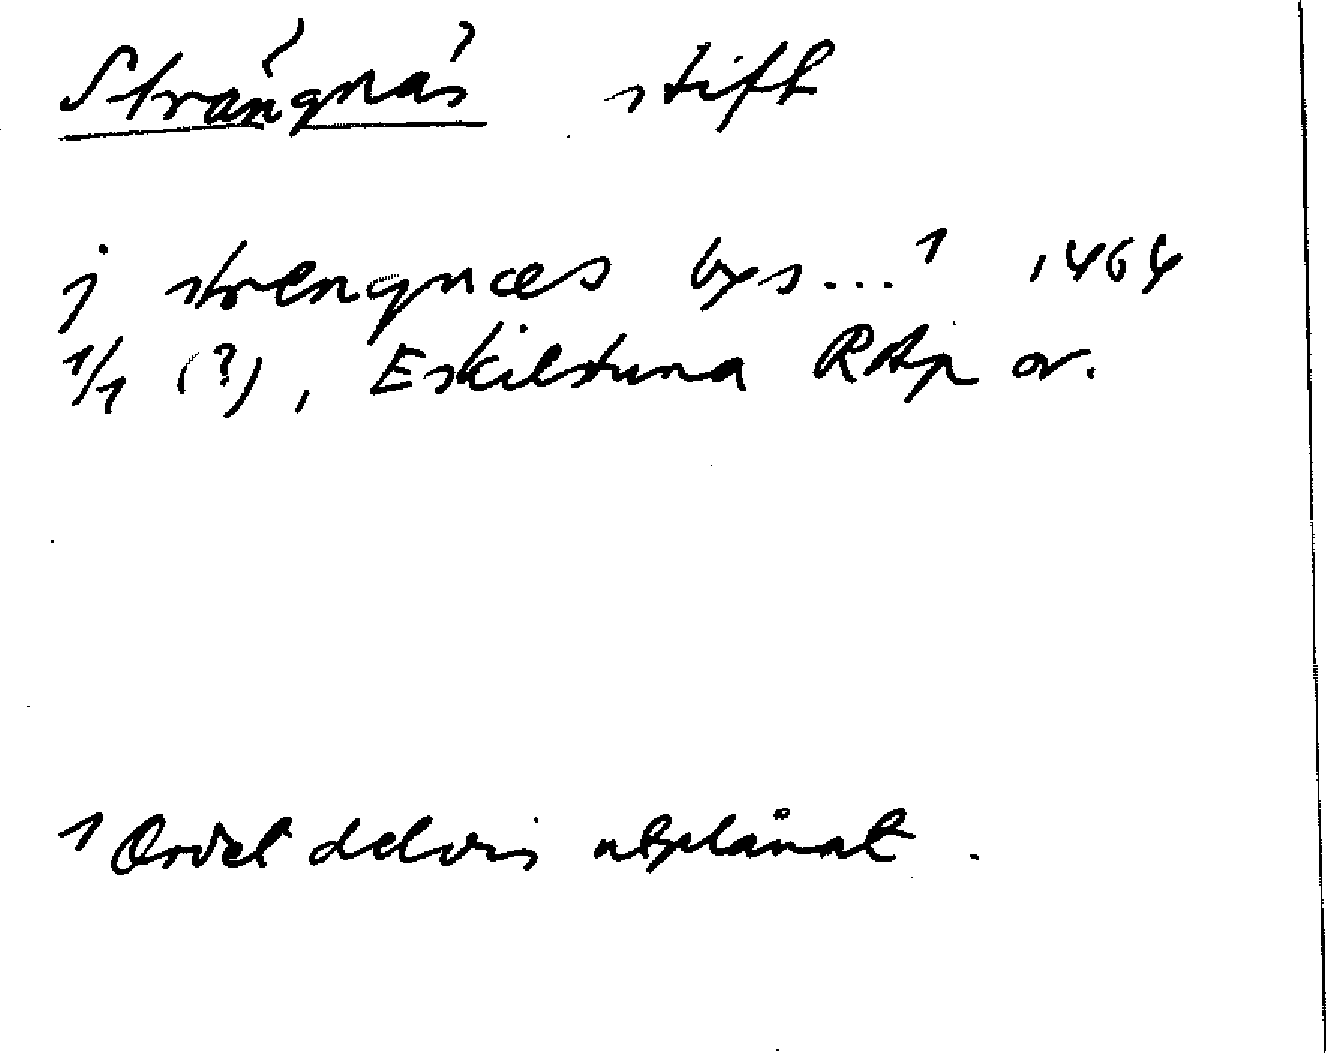 Strängnäs stift
j strengnæs bys...¹ 1464
1/1 (?), Eskilstuna RAp or.
1 Ordet delvis utplånat.